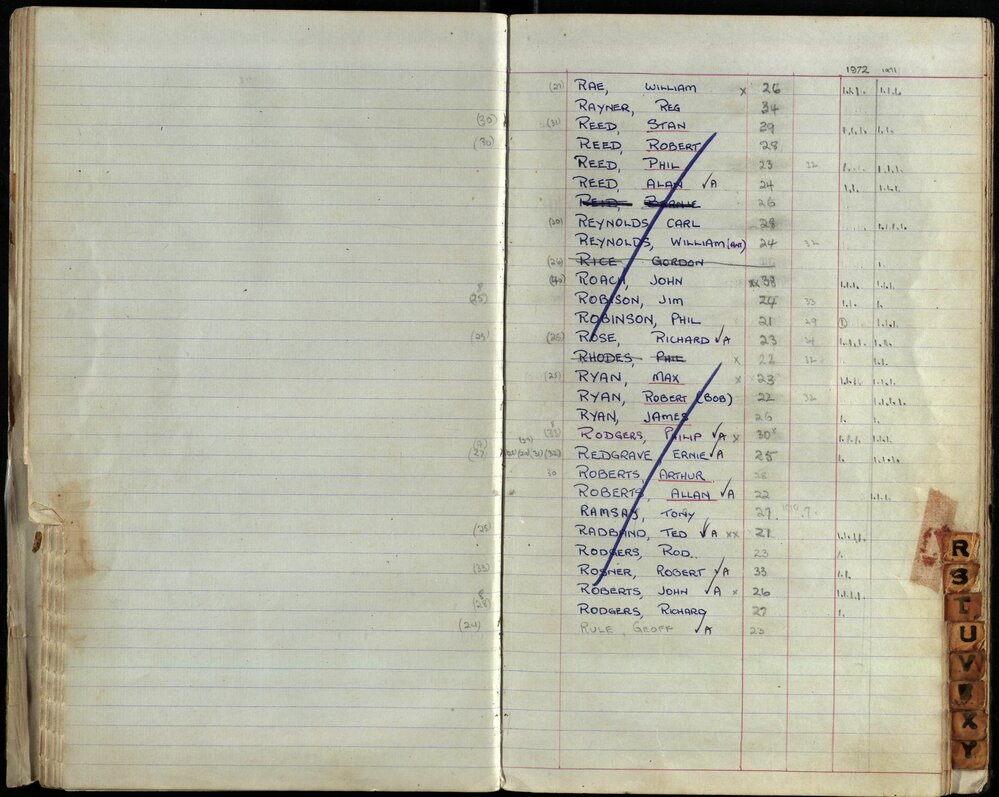 1972 1971
(27) RAE, WILLIAM x 26
RAYNER, REG 34
(30) (31) REED, STAN 29
(30) REED, ROBERT 28
REED, PHIL 23 22
REED, ALAN ✓A 24
REID, BARNIE 26
(30) REYNOLDS, CARL 28
REYNOLDS, WILLIAM (ANT) 24 32
(26) RICE GORDON
(40) ROACH, JOHN xx 38
8
(25) ROBISON, JIM 24 33
ROBINSON, PHIL 21 29 ①
(25) (25) ROSE, RICHARD ✓A 23
RHODES, PHIL x 22 22
(25) RYAN, MAX x 23
RYAN, ROBERT (BOB) 22 32
RYAN, JAMES 26
(33) RODGERS, PHILIP ✓A x 30x
(9)
(27) (31) (32) REDGRAVE, ERNIE ✓A 25
30 ROBERTS, ARTHUR 28
ROBERTS, ALLAN ✓A 22
RAMSAY, TONY 27 ?
(25) RADBAND, TED ✓A xx 21
RODGERS, ROD. 23
(33) ROSNER, ROBERT ✓A 33
8
ROBERTS, JOHN ✓A x 26
(28) RODGERS, RICHARD 27
(24) RULE, GEOFF ✓A 23
R
S
T
U
V
X
Y